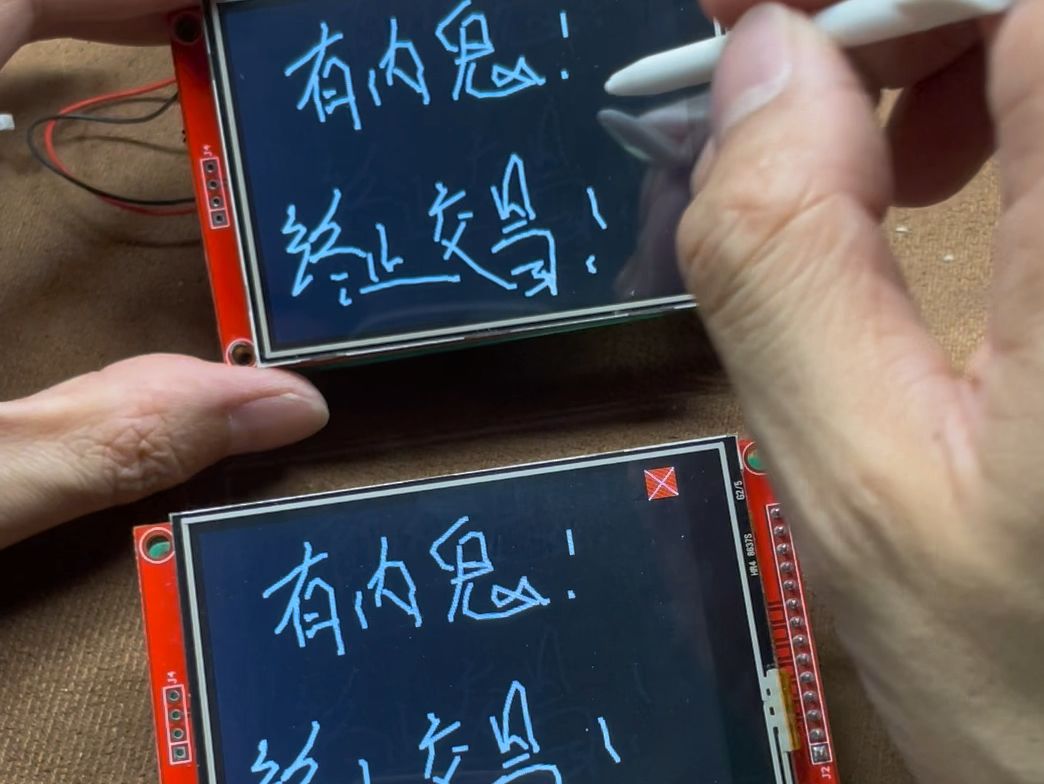 有内鬼!
终止交易!
J4
有内鬼!
终止交易
J4
G2/5
HR4 8637S
J2